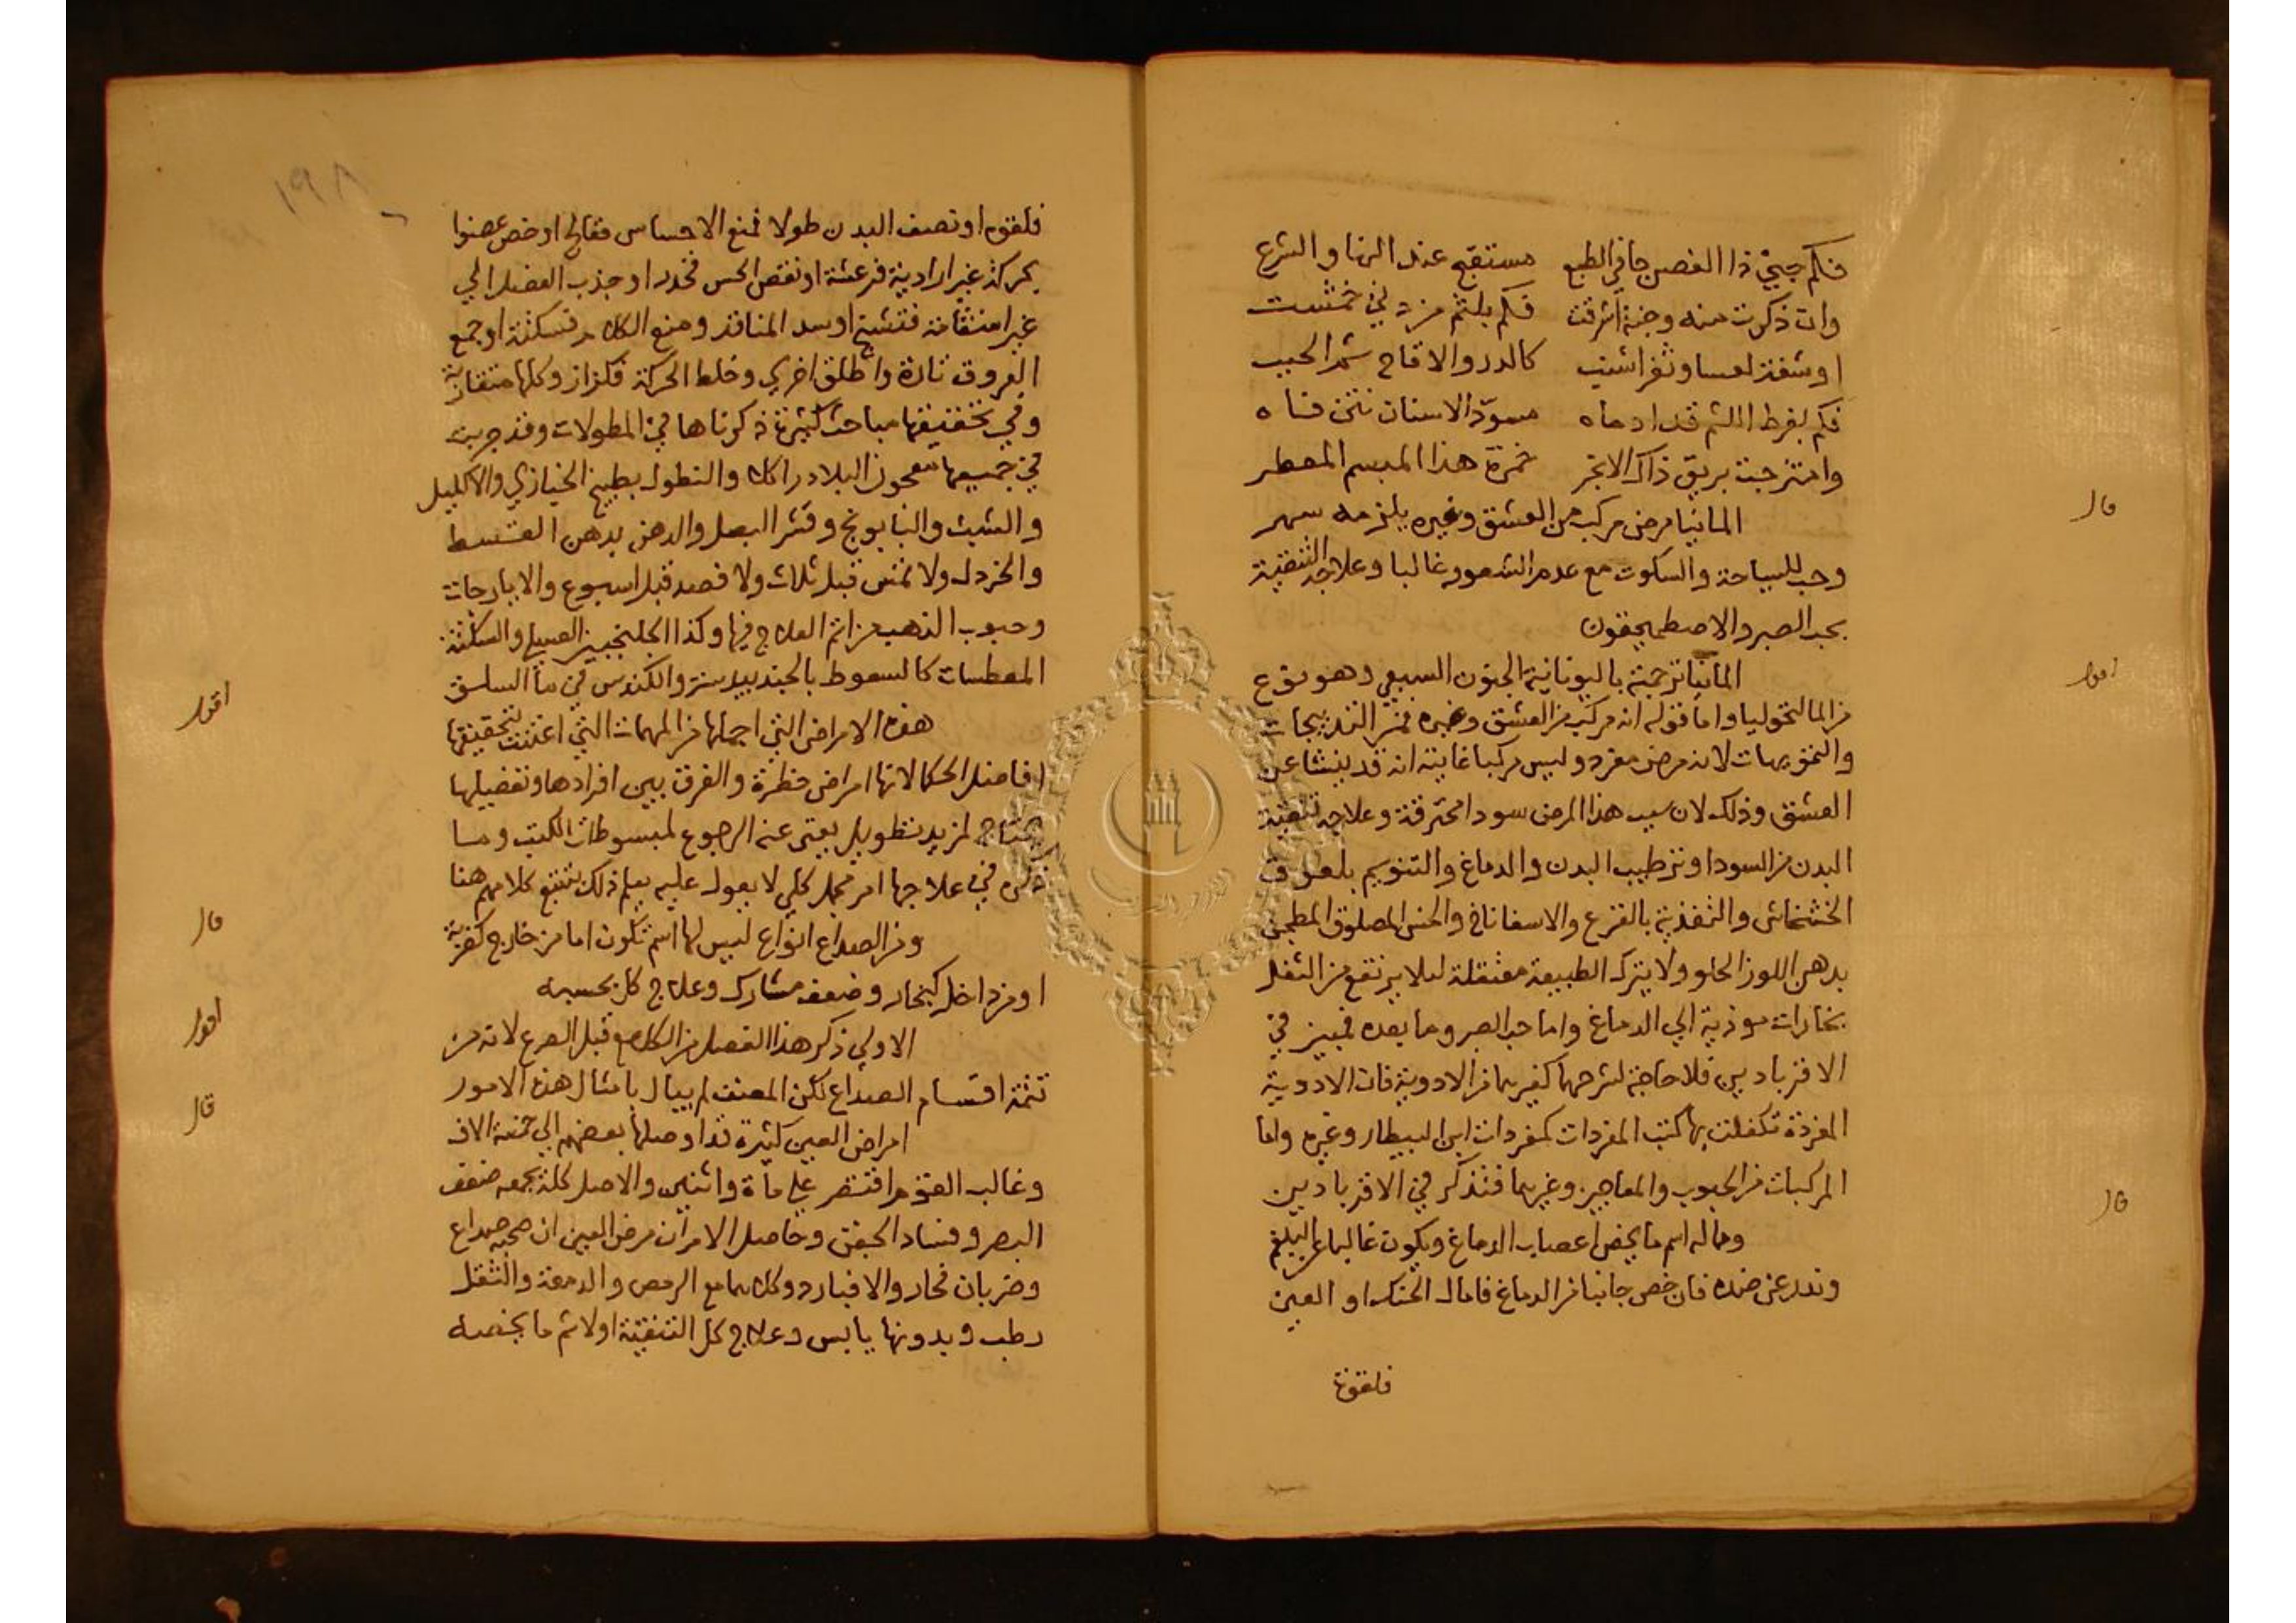 فكم جني ذا الغصن جافي الطبع مستقبح عند النها والشرع
وان ذكرت منه وجنة اشرقت فكم بلثم من دني خمشت
او شفة لعسا وثغر اشنب كالدر والاقاح شهر الحبب
فكم بفرط اللثم قد ادماه مسود الاسنان نتن فاه
وامتزجت بريق ذاك الابخر خمرة هذا المبسم المعطر
قال
المانيا مرض مركب من العشق وغيره يلزمه سهر
وحب للسياحة والسكوت مع عدم الشعور غالبا وعلاجه التنقية
بحب الصبر والاصطمخيقون
اقول
المانيا ترجمته باليونانية الجنون السبعي وهو نوع
من المالنخوليا واما قوله انه مركب من العشق وغيره فمن التدبيجات
والتمويهات لانه مرض مفرد وليس مركبا غايته انه قد ينشا عن
العشق وذلك لان سبب هذا المرض سودا محترقة وعلاجه تنقية
البدن من السودا وترطيب البدن والدماغ والتنويم بلعوق
الخشخاش والتغذية بالقرع والاسفاناخ والخس المصلوق المطجن
بدهن اللوز الحلو ولا يترك الطبيعة معتقلة ليلا يرتفع من الثفل
بخارات موذية الي الدماغ واما حب الصبر وما بعده فمبين في
الاقرباديين فلا حاجة لشرحهما كغيرهما من الادوية فان الادوية
المفردة تكفلت بها كتب المفردات كمفردات ابن البيطار وغيره واما
المركبات من الحبوب والمعاجين وغيرهما فتذكر في الاقرباديين
قال
وماله اسم ما يخص اعصاب الدماغ ويكون غالبا عن البلغم
وندر عن ضده فان خص جانبا من الدماغ فامال الحنك او العين
فلقوة
١٩٨
فلقوه او نصف البدن طولا فمنع الاحساس ففالج او خص عضوا
بحركة غير ارادية فرعشة او نقص الحس فخدر او جذب العضل الي
غير استقامة فتشنج او سد المنافذ ومنع الكلام فسكتة او جمع
العروق تارة واطلق اخري وخلط الحركة فكزاز وكلها متقاربة
وفي تحقيقها مباحث كثيرة ذكرناها في المطولات وقد جربت
في جميعها معجون البلادر اكلا والنطول بطبيخ الخبازي والاكليل
والشبث والبابونج وقشر البصل والدهن بدهن القسط
والخردل ولا تمس قبل ثلاث ولا فصد قبل اسبوع والايارجات
وحبوب الذهب من اتم العلاج فيها وكذا الجلنجبين العسلي والسكتة
المعطسات كالسعوط بالجندبيدستر والكندس في ما السلق
اقول
هذه الامراض التي اجملها من المهمات التي اعتنت بتحقيقها
افاضل الحكما لانها امراض خطرة والفرق بين افرادها وتفضيلها
يحتاج لمزيد تطويل يغني عنه الرجوع لمبسوطات الكتب وما
ذكره في علاجها امر مجمل كلي لا يعول عليه يعلم ذلك بتتبع كلامهم هنا
قال
ومن الصداع انواع ليس لها اسم تكون اما من خارج كضربة
او من داخل كبخار وضعف مشارك وعلاج كل بحسبه
اقول
الاولي ذكر هذا الفصل من الكلام قبل الصرع لانه من
تتمة اقسام الصداع لكن المصنف لم يبال بامثال هذه الامور
قال
امراض العين كثيرة قد اوصلها بعضهم الي خمسة الاف
وغالب القوم اقتصر علي ماة واثنين والاصل كله يجمعه ضعف
البصر وفساد الجفن وحاصل الامر ان مرض العين ان صحبه صداع
وضربان فحار والا فبارد وكل منهما مع الرمص والدمعة والثقل
رطب وبدونها يابس وعلاج كل التنقية اولا ثم ما يخصه